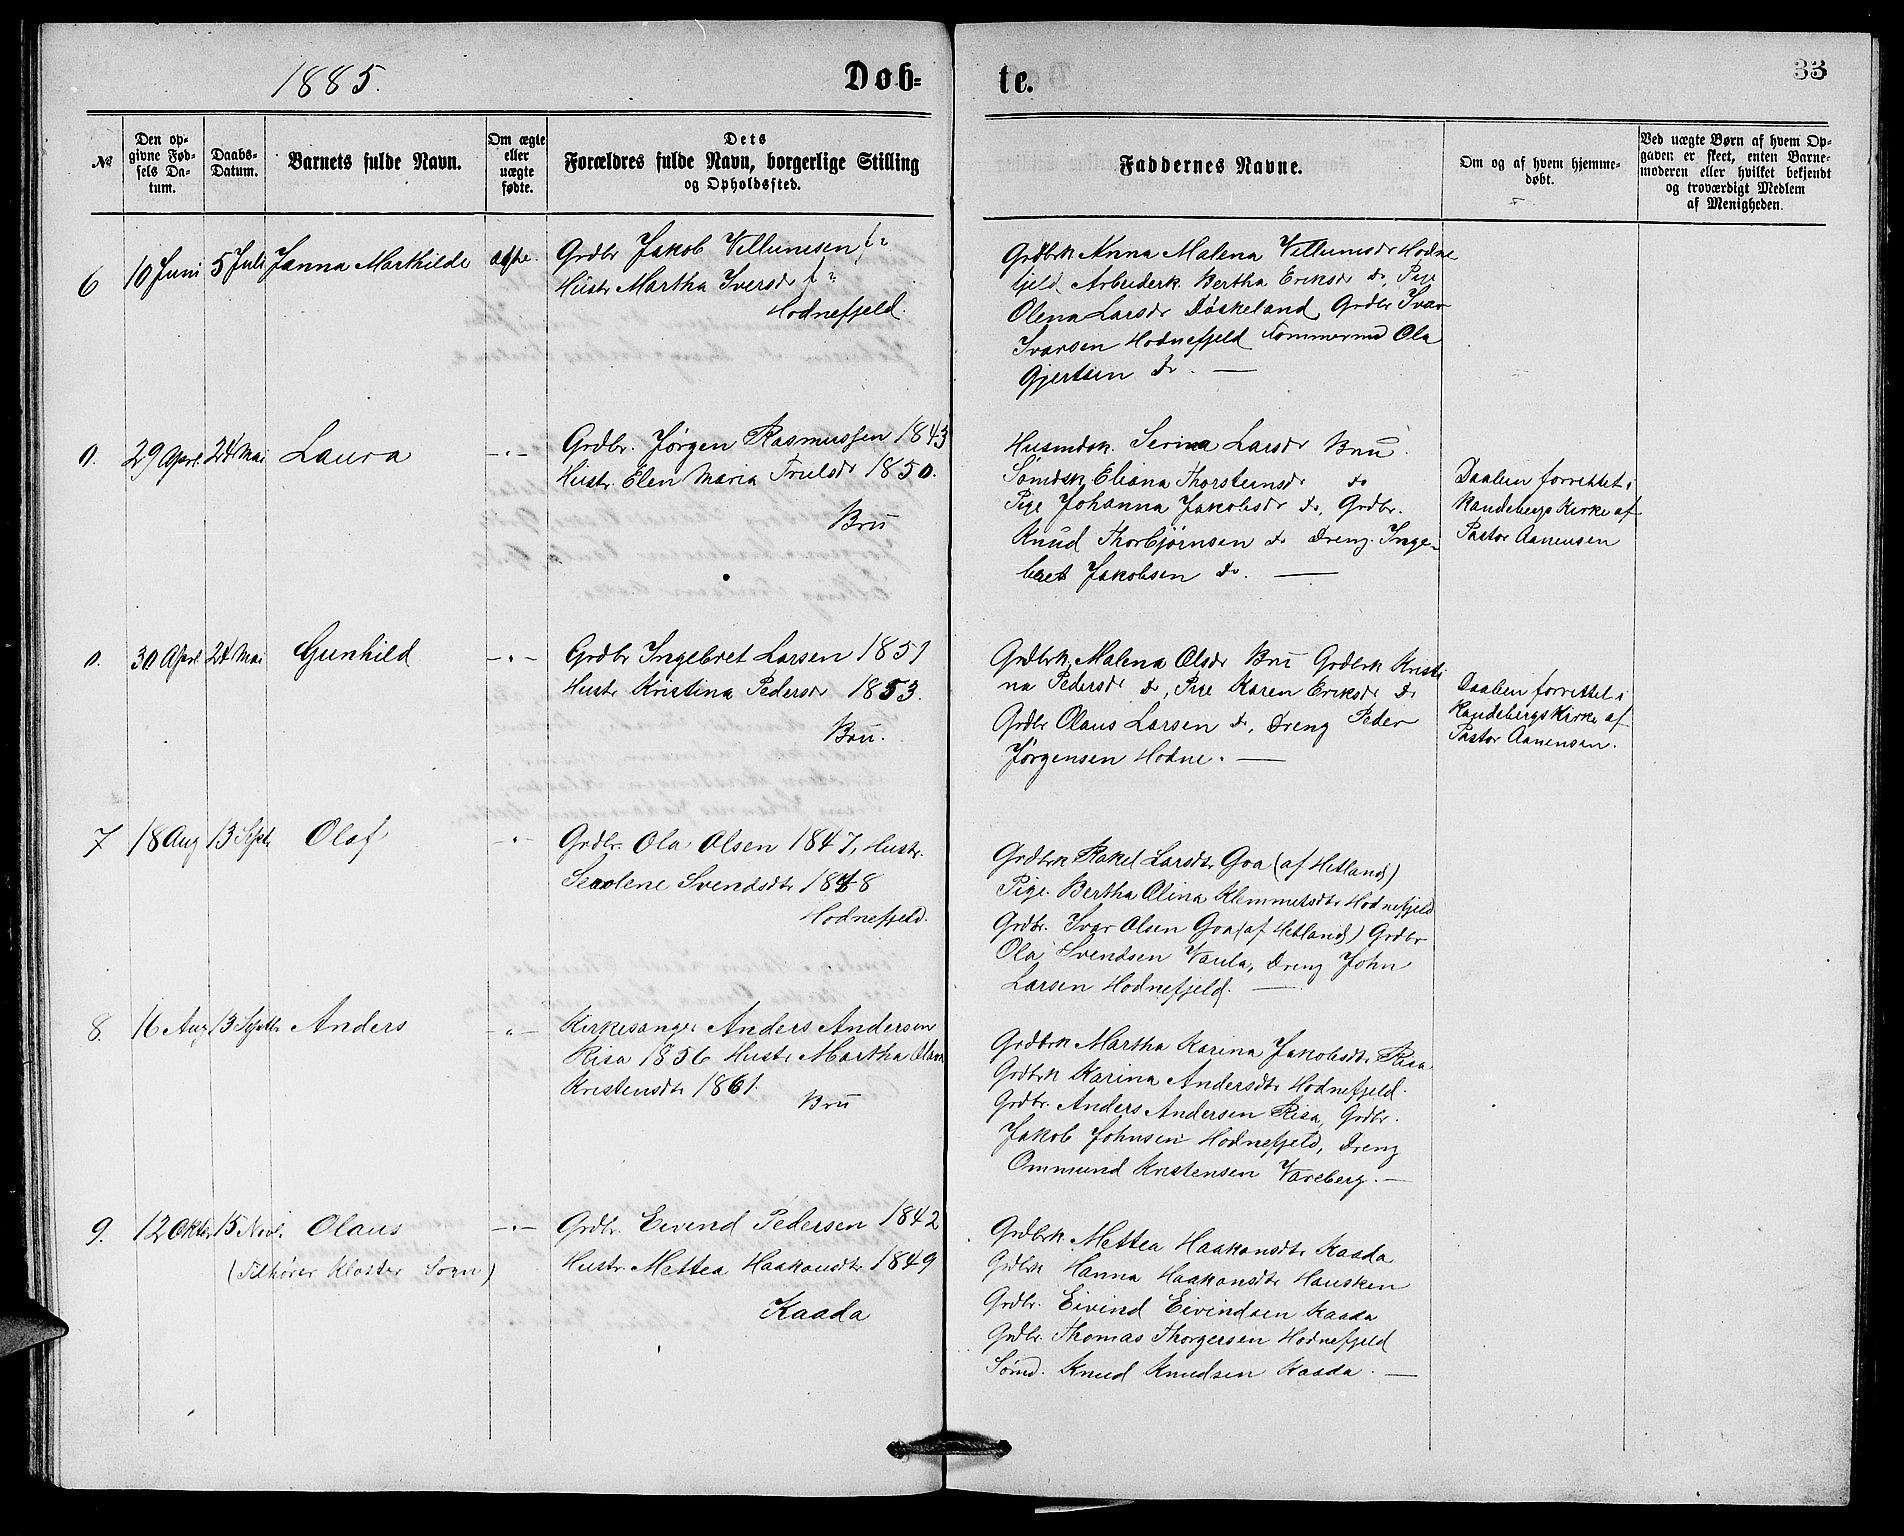 1885.
Døb-
te.
33
№
Den op-
givne Fød-
sels Da-
tum.
Daabs-
Datum.
Barnets fulde Navn.
Om ægte
eller
uægte
fødte.
Dets
Forældres fulde Navn, borgerlige Stilling
og Opholdssted.
Faddernes Navne.
Om og af hvem hjemme-
døbt.
Ved uægte Børn af hvem Op-
gaven er skeet, enten Barne-
moderen eller hvilket bekjendt
og troværdigt Medlem
af Menigheden.
6
10 Juni
5 Juli
Janna Marthilde
ægte.
Grdbr Jakob Villumsen f:
Hustr Martha Iversdr f:
Hodnefjeld.
Grdbrk Anna Malena Villumsdr Hodne
fjeld Arbeiderk. Bertha Eriksdr do, Pige
Olena Larsdr Døskeland, Grdbr Ivar
Ivarsen Hodnefjeld Tømmermd Ola
Gjertsen do. —
0.
29 April
24 Mai
Laura
-"-
Grdbr. Jørgen Rasmussen 1843
Hustr. Elen Maria Trulsdr 1850.
Bru
Husmdsk. Serina Larsdr Bru.
Sømdsk Eliana Thorsteinsdr do
Pige Johanna Jakobsdr do, Grdbr.
Knud Thorbjørnsen do Dreng. Inge-
bret Jakobsen do. —
Daaben forrettet i
Randebergs Kirke af
Pastor Aanensen
0.
30 April
24 Mai
Gunhild
-"-
Grdbr Ingebret Larsen 1851
Hustr Kristina Pedersdr 1853.
Bru.
Grdbrk. Malena Olsdr Bru Grdbrk Kristi
na Pedersdr do, Pige Karen Eriksdr do
Grdbr Olaus Larsen do, Dreng Peder
Jørgensen Hodne. —
Daaben forrettet i
Randebergs Kirke af
Pastor Aanensen.
7
18 Aug
13 Sept.
Olaf
-"-
Grdbr. Ola Olsen 1847, Hustr.
Serolene Svendsdtr 1848
Hodnefjeld.
Grdbrk Rakel Larsdtr Goa (af Hetland)
Pige. Bertha Olina Klemmetsdtr Hodnefjeld
Grdbr. Ivar Olsen Goa (af Hetland) Grdbr
Ola Svendsen Vaula, Dreng John
Larsen Hodnefjeld. —
8.
16 Aug
13 Septbr
Anders
-"-
Kirkesanger Anders Andersen
Risa 1856 Hustr Martha Olava
Kristensdtr 1861.
Bru
Grdbrk Martha Karina Jakobsdtr Risa
Grdbrk Karina Andersdtr Hodnefjeld.
Grdbr. Anders Andersen Risa, Grdbr.
Jakob Johnsen Hodnefjeld, Dreng
Ommund Kristensen Vareberg. —
9.
12 Oktbr
15 Novb.
Olaus
-"-
(Tilhører Kloster Sogn)
Grdbr. Eivend Pedersen 1842
Hustr. Mettea Haakonsdtr 1849
Kaada
Grdbrk Mettea Haakonsdtr Kaada
Grdbrk Hanna Haakonsdtr Hausken
Grdbr. Eivind Eivindsen Kaada
Grdbr. Thomas Thorgersen Hodnefjeld
Sømd. Knud Knudsen Kaada. —